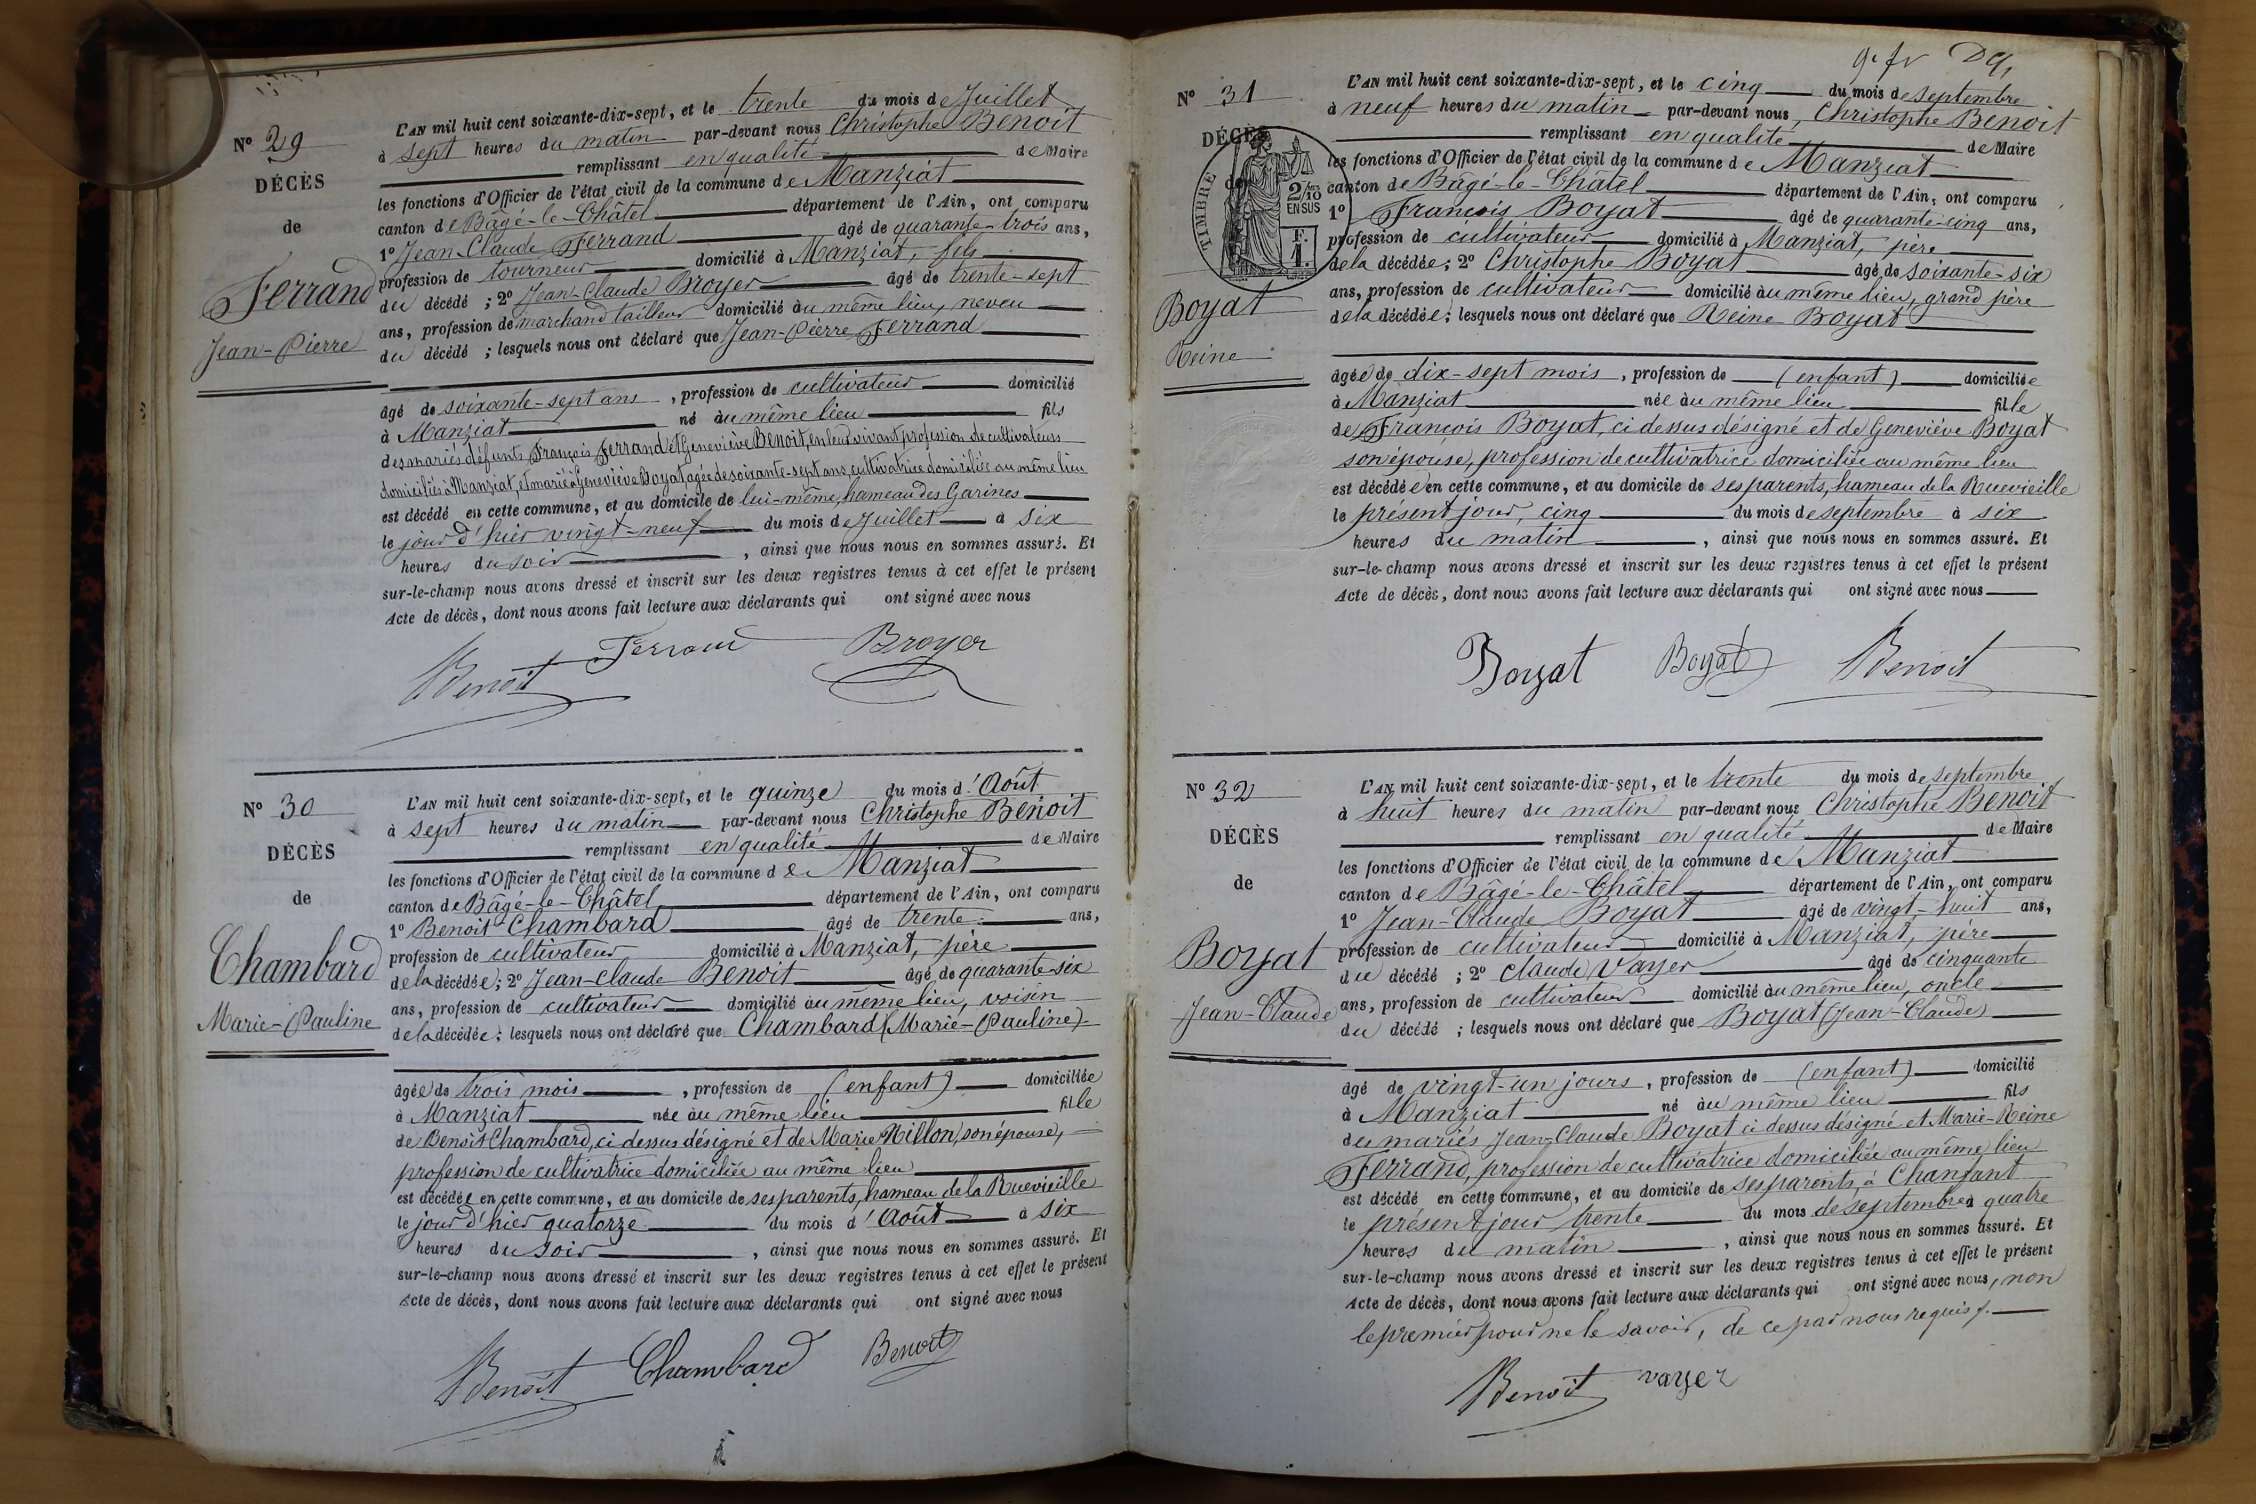 N° 29
DÉCÈS
de
Ferrand
Jean-Pierre
L'AN mil huit cent soixante-dix-sept, et le trente du mois de Juillet
à sept heures du matin par-devant nous Christophe Benoit
remplissant en qualité de Maire
les fonctions d'Officier de l'état civil de la commune de Manziat
canton de Bâgé-le-Châtel département de l'Ain, ont comparu
1° Jean-Claude Ferrand âgé de quarante-trois ans,
profession de tourneur domicilié à Manziat, fils
du décédé ; 2° Jean-Claude Broyer âgé de trente-sept
ans, profession de marchand tailleur domicilié au même lieu, neveu
du décédé ; lesquels nous ont déclaré que Jean-Pierre Ferrand
âgé de soixante-sept ans, profession de cultivateur domicilié
à Manziat né au même lieu fils
des mariés défunts François Ferrand et Geneviève Benoit, en leur vivant profession de cultivateurs
domiciliés à Manziat, et marié à Geneviève Boyat agée de soixante-sept ans, cultivatrice domiciliée au même lieu
est décédé en cette commune, et au domicile de lui-même, hameau des Garines
le jour d'hier vingt-neuf du mois de Juillet à six
heures du soir , ainsi que nous nous en sommes assuré. Et
sur-le-champ nous avons dressé et inscrit sur les deux registres tenus à cet effet le présent
Acte de décès, dont nous avons fait lecture aux déclarants qui ont signé avec nous
Benoit Ferrand Broyer
N° 30
DÉCÈS
de
Chambard
Marie-Pauline
L'AN mil huit cent soixante-dix-sept, et le quinze du mois d'Août
à sept heures du matin par-devant nous Christophe Benoit
remplissant en qualité de Maire
les fonctions d'Officier de l'état civil de la commune de Manziat
canton de Bâgé-le-Châtel département de l'Ain, ont comparu
1° Benoit Chambard âgé de trente ans,
profession de cultivateur domicilié à Manziat, père
de la décédée ; 2° Jean-Claude Benoit âgé de quarante-six
ans, profession de cultivateur domicilié au même lieu, voisin
de la décédée ; lesquels nous ont déclaré que Chambard (Marie-Pauline)
âgée de trois mois , profession de (enfant) domiciliée
à Manziat née au même lieu fille
de Benoit Chambard, ci dessus désigné et de Marie Millon, son épouse,
profession de cultivatrice domiciliée au même lieu
est décédée en cette commune, et au domicile de ses parents, hameau de la Ruevieille
le jour d'hier quatorze du mois d'Août à six
heures du soir , ainsi que nous nous en sommes assuré. Et
sur-le-champ nous avons dressé et inscrit sur les deux registres tenus à cet effet le présent
Acte de décès, dont nous avons fait lecture aux déclarants qui ont signé avec nous
Benoit Chambard Benoit
N° 31
DÉCÈS
de
TIMBRE
2/10
EN SUS
F.
1.
Boyat
Reine
L'AN mil huit cent soixante-dix-sept, et le cinq du mois de septembre
à neuf heures du matin par-devant nous, Christophe Benoit
remplissant en qualité de Maire
les fonctions d'Officier de l'état civil de la commune de Manziat
canton de Bâgé-le-Châtel département de l'Ain, ont comparu
1° François Boyat âgé de quarante-cinq ans,
profession de cultivateur domicilié à Manziat, père
de la décédée ; 2° Christophe Boyat âgé de soixante-six
ans, profession de cultivateur domicilié au même lieu, grand père
de la décédée ; lesquels nous ont déclaré que Reine Boyat
âgée de dix-sept mois , profession de (enfant) domiciliée
à Manziat née au même lieu fille
de François Boyat, ci dessus désigné et de Geneviève Boyat
son épouse, profession de cultivatrice domiciliée au même lieu
est décédée en cette commune, et au domicile de ses parents, hameau de la Ruevieille
le présent jour, cinq du mois de septembre à six
heures du matin , ainsi que nous nous en sommes assuré. Et
sur-le-champ nous avons dressé et inscrit sur les deux registres tenus à cet effet le présent
Acte de décès, dont nous avons fait lecture aux déclarants qui ont signé avec nous
Boyat Boyat Benoit
N° 32
DÉCÈS
de
Boyat
Jean-Claude
L'AN mil huit cent soixante-dix-sept, et le trente du mois de septembre
à huit heures du matin par-devant nous Christophe Benoit
remplissant en qualité de Maire
les fonctions d'Officier de l'état civil de la commune de Manziat
canton de Bâgé-le-Châtel département de l'Ain, ont comparu
1° Jean-Claude Boyat âgé de vingt-huit ans,
profession de cultivateur domicilié à Manziat, père
du décédé ; 2° Claude Vayer âgé de cinquante
ans, profession de cultivateur domicilié au même lieu, oncle
du décédé ; lesquels nous ont déclaré que Boyat (Jean-Claude)
âgé de vingt-un jours , profession de (enfant) domicilié
à Manziat né au même lieu fils
des mariés Jean-Claude Boyat ci dessus désigné et Marie-Reine
Ferrand, profession de cultivatrice domiciliée au même lieu
est décédé en cette commune, et au domicile de ses parents à Chanfant
le présent jour trente du mois de septembre à quatre
heures du matin , ainsi que nous nous en sommes assuré. Et
sur-le-champ nous avons dressé et inscrit sur les deux registres tenus à cet effet le présent
Acte de décès, dont nous avons fait lecture aux déclarants qui ont signé avec nous, non
le premier pour ne le savoir, de ce par nous requis.
Benoit vayer